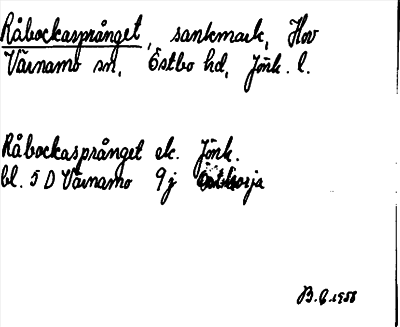 Råbockasprånget, sankmark, Hov
Värnamo sn, Östbo hd, Jönk. l.
Råbockasprånget ek. Jönk.
bl. 5 D Värnamo 9j
B.G. 1958